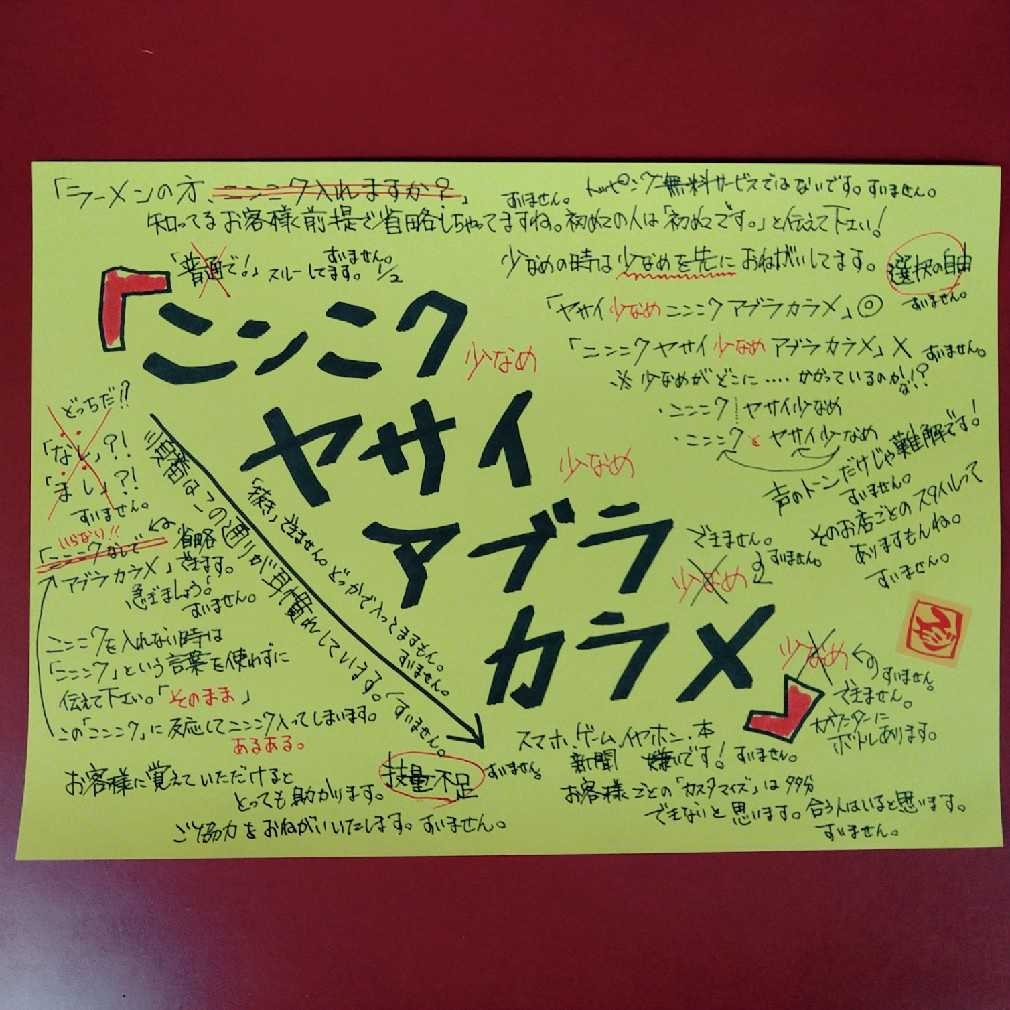 「ラーメンの方、ニンニク入れますか?」 すいません。
トッピング無料サービスではないです。すいません。
知ってるお客様前提で省略しちゃってますね。初めての人は「初めてです。」と伝えて下さい!
「普通で!」スルーしてます。1/2 すいません。
少なめの時は少なめを先におねがいしてます。
選択の自由
すいません。
「ヤサイ少なめニンニクアブラカラメ」◎
「ニンニクヤサイ少なめアブラカラメ」× すいません。
※少なめがどこに‥‥かかっているのかな!?
・ニンニク┊ヤサイ少なめ
・ニンニクとヤサイ少なめ
声のトーンだけじゃ難解です!
すいません。
そのお店ごとのスタイルって
ありますもんね。
すいません。
「ニンニク 少なめ
ヤサイ 少なめ
アブラ 少なめ
カラメ」 少なめ
できません。
すいません。
すいません。
できません。
カウンターに
ボトルあります。
どっちだ!!
「なし」?!
「まし」?!
すいません。
いらない!!
「ニンニクなしで
アブラカラメ」
省略
できます。
急ぎましょう!
すいません。
順番はこの通りが耳慣れしています。「すいません。
「抜き」できません。どっかで入っとますもん。
すいません。
ニンニクを入れない時は
「ニンニク」という言葉を使わずに
伝えて下さい。「そのまま」
この「ニンニク」に反応してニンニク入ってしまいます。
あるある。
お客様に覚えていただけると
とっても助かります。
技量不足
すいません。
ご協力をおねがいいたします。すいません。
スマホ、ゲーム、イヤホン、本
新聞 嫌いです! すいません。
お客様ごとの「カスタマイズ」は99%
できないと思います。合う人はいると思います。
すいません。